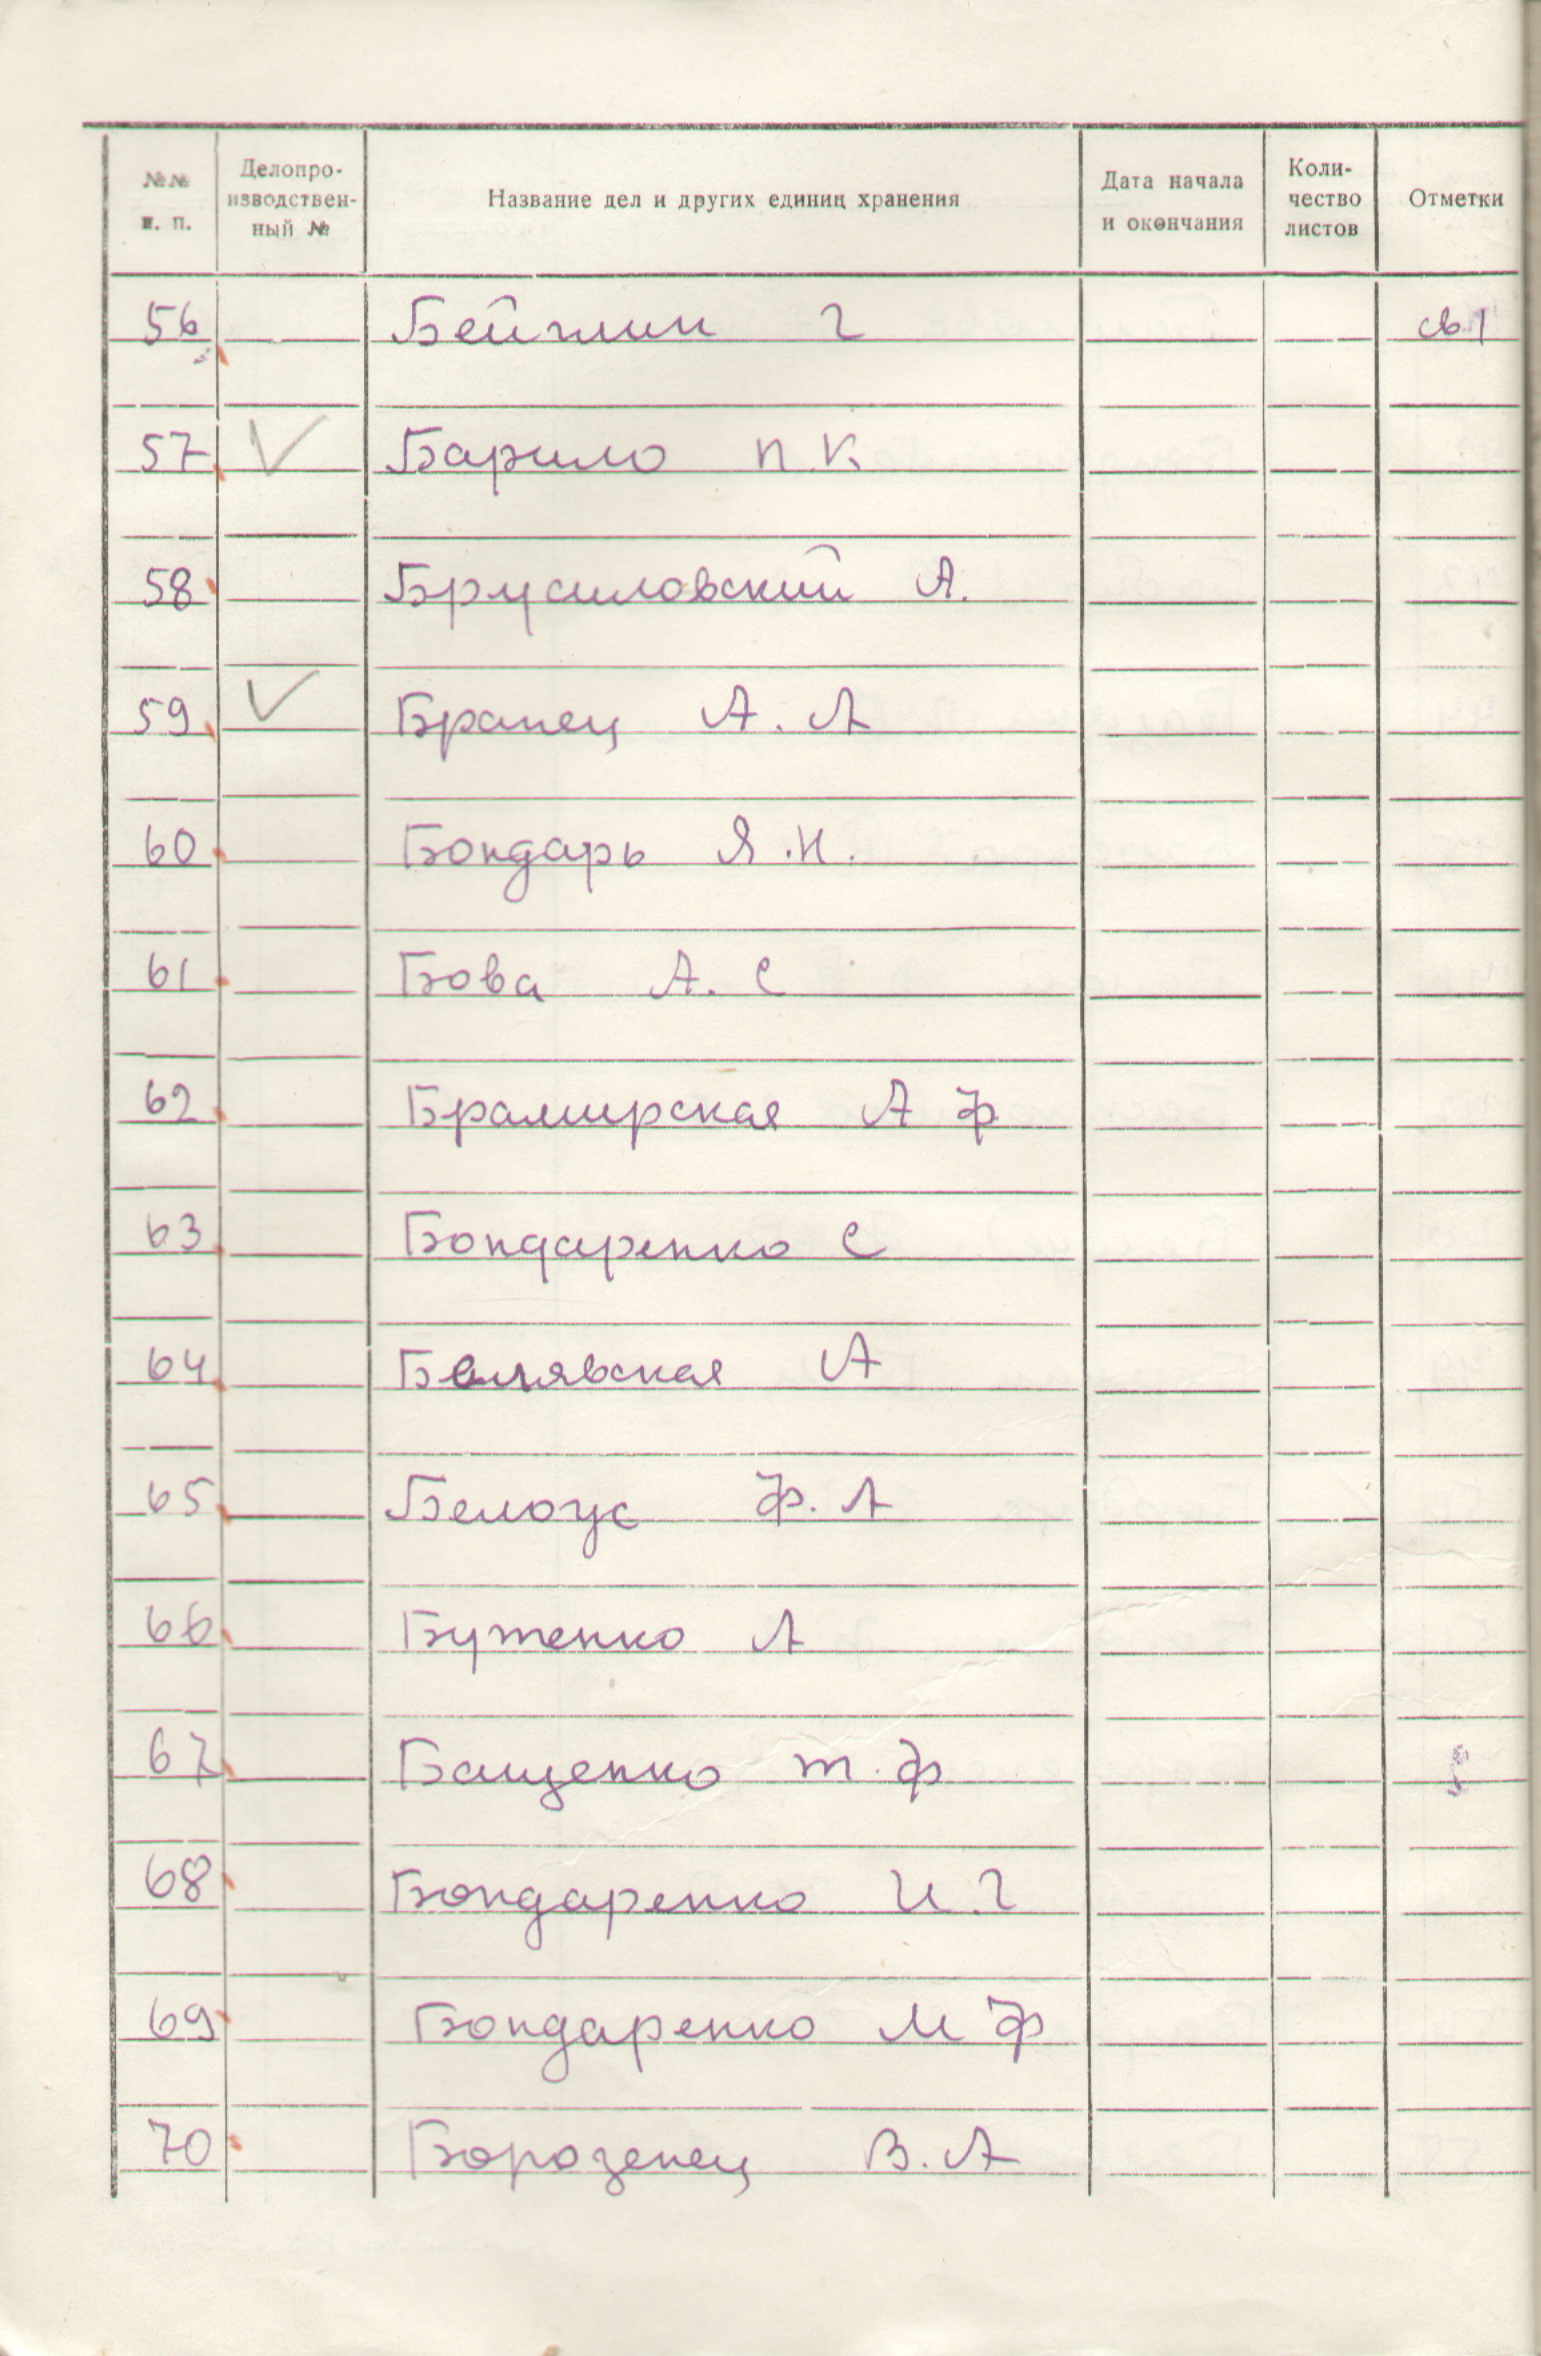 №№ п. п. Делопроизводственный № Название дел и других единиц хранения Дата начала и окончания Количество листов Отметки
56 Бейглин Г св 1
57 Барило П. К
58 Брусиловский А.
59 Бранец А. Л
60 Бондарь Я. И.
61 Бова А. С
62 Брамирская А Ф
63 Бондаренко С
64 Белявская А
65 Белоус Ф. Л
66 Бутенко Л
67 Бащенко Т. Ф
68 Бондаренко И. Г
69 Бондаренко М Ф
70 Борозенец В. А